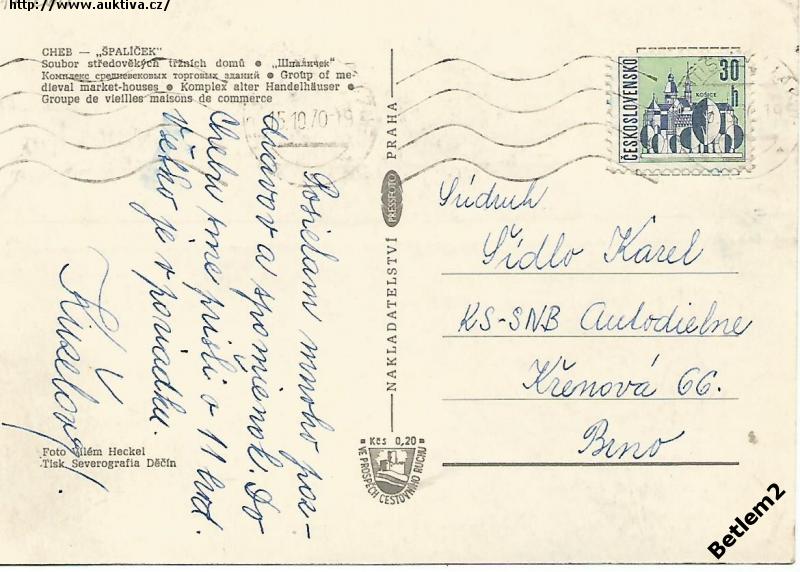 http://www.auktiva.cz/
CHEB — „ŠPALÍČEK"
Soubor středověkých tržních domů ● „Шпаличек"
Комплекс средневековых торговых зданий ● Group of me-
dieval market-houses ● Komplex alter Handelhäuser ●
Groupe de vieilles maisons de commerce
15.10.70-19
ČESKOSLOVENSKO
30
h
KOŠICE
Posielam mnoho poz-
dravov a spomienok. Do
Chebu sme prišli o 11 hod.
Všetko je v poriadku.
NAKLADATELSTVÍ PRESSFOTO PRAHA
Súdruh
Šídlo Karel
KS-SNB Autodielne
Křenová 66.
Brno
Kčs 0,20
VE PROSPĚCH CESTOVNÍHO RUCHU
Foto Vilém Heckel
Tisk Severografia Děčín
Betlem2